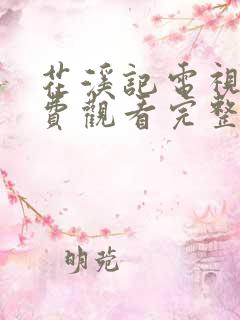 茫溪記電視
費觀看完整
明菀